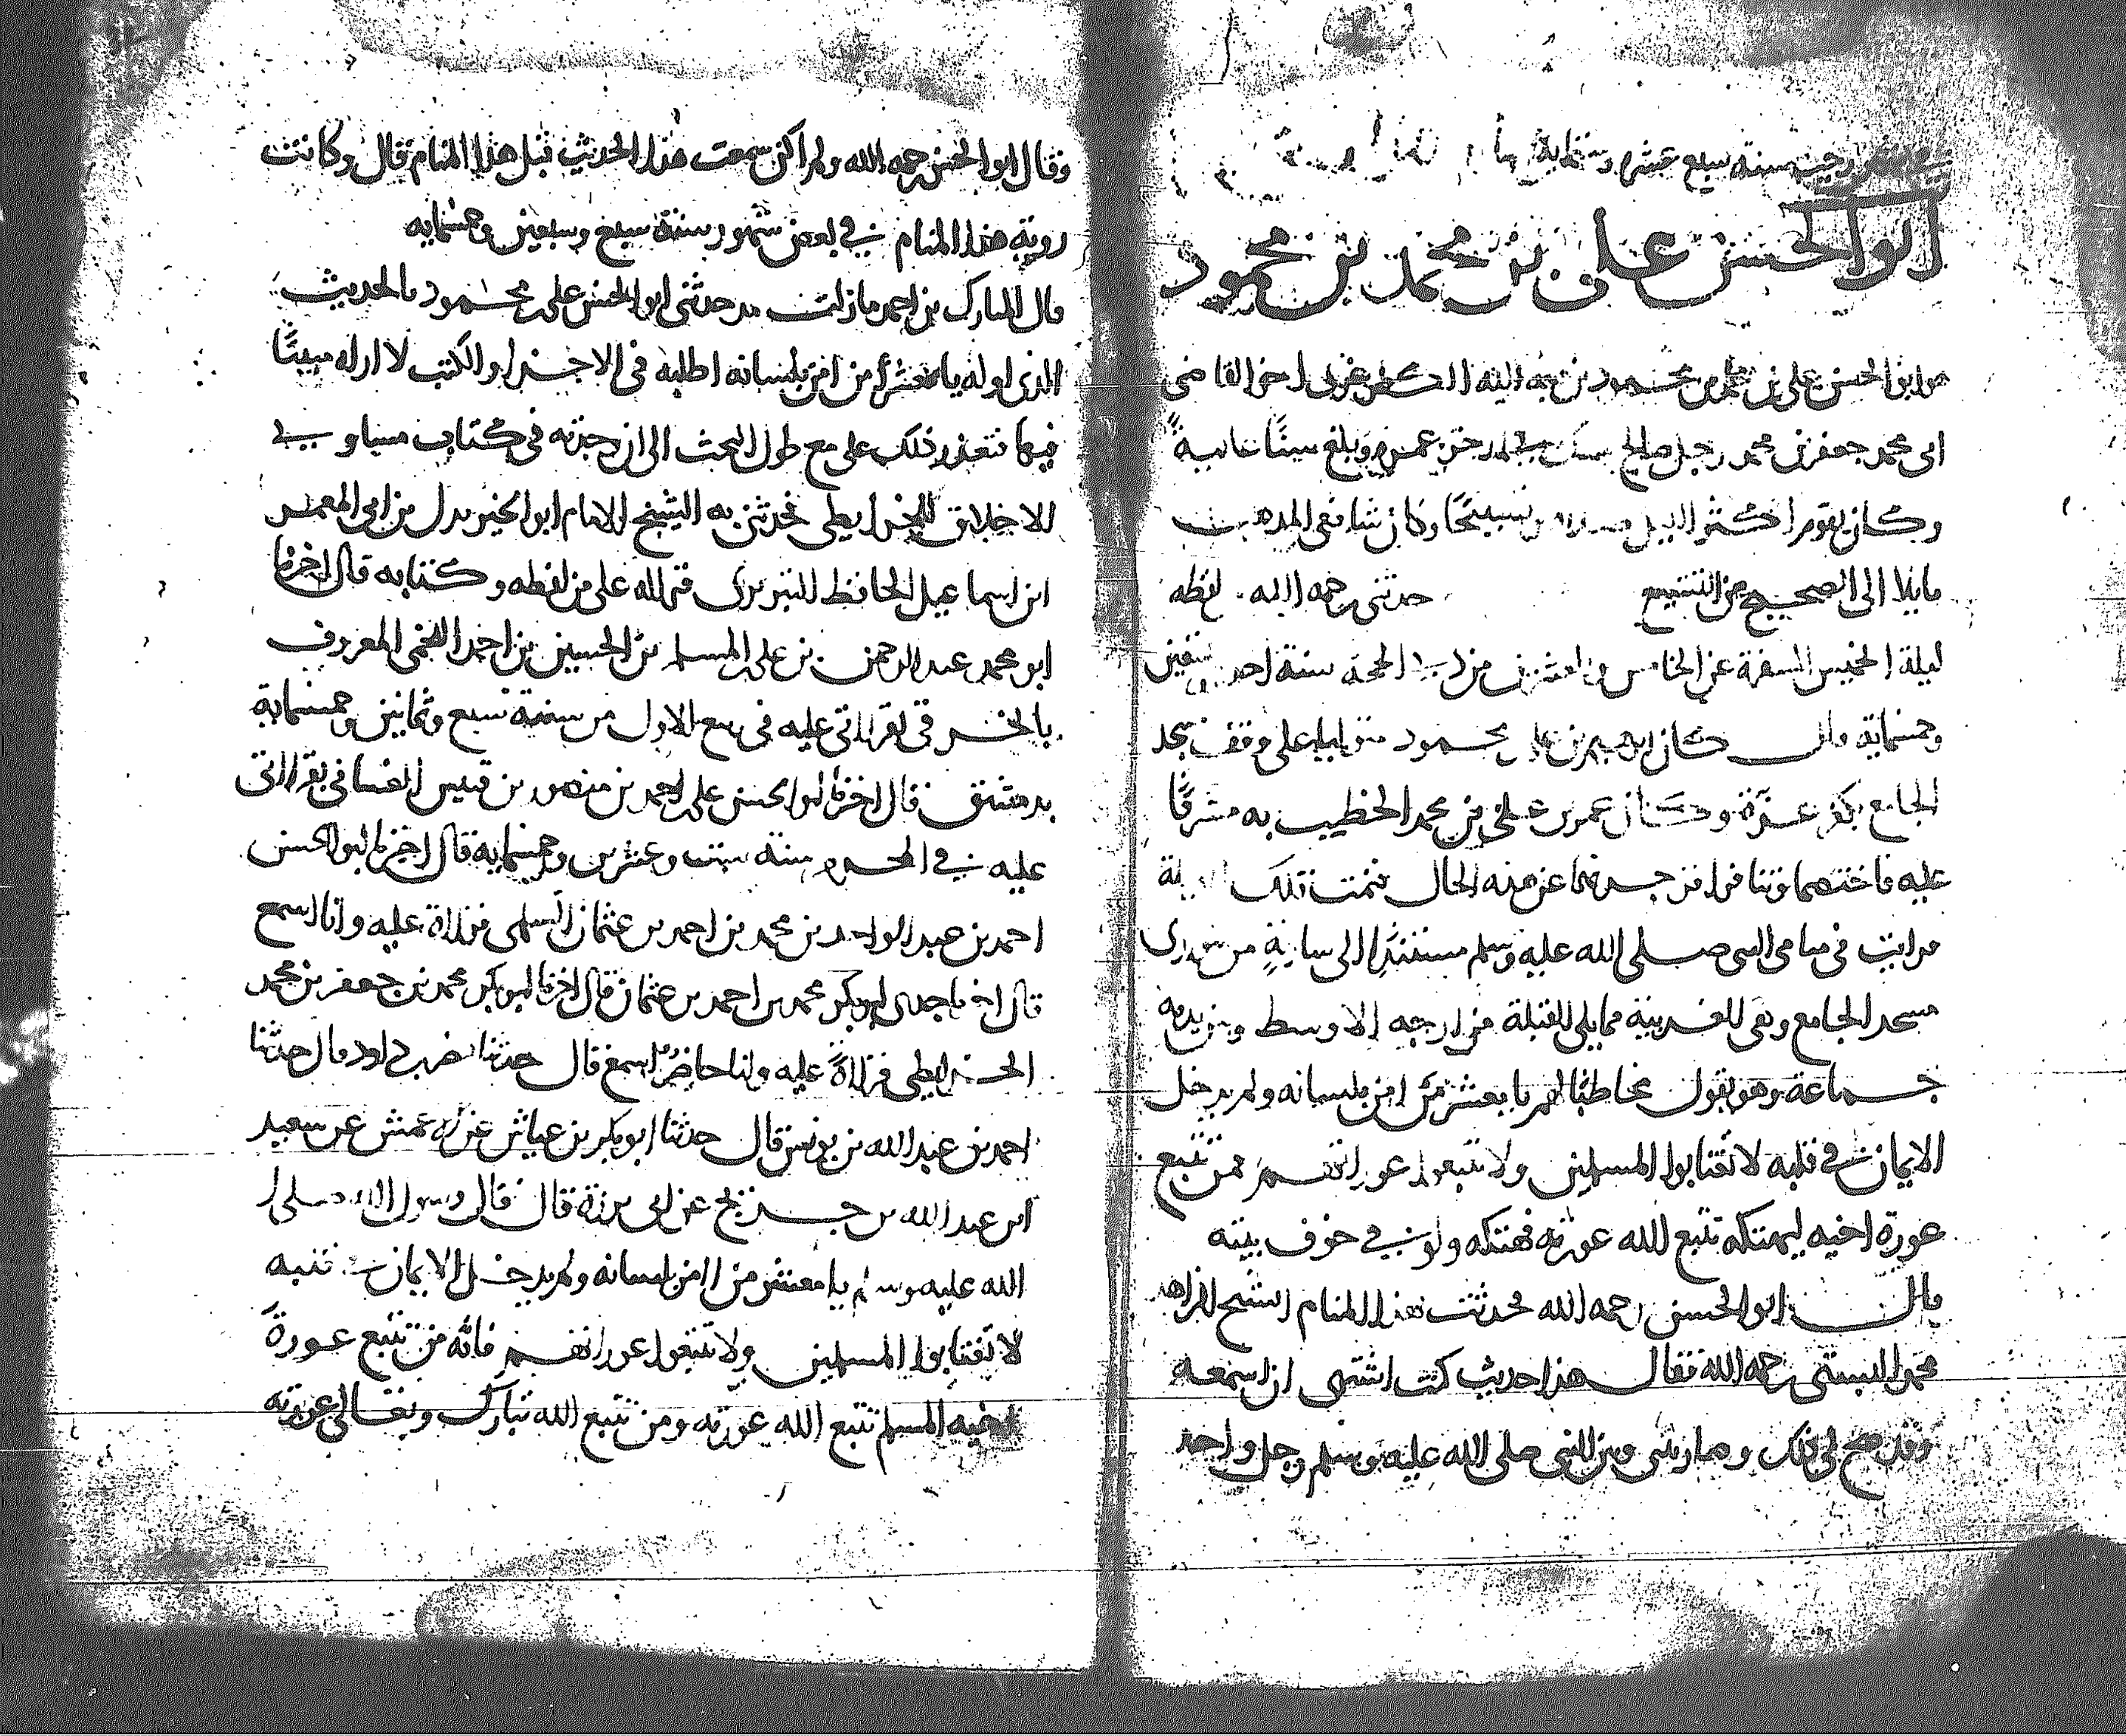 رجب سنة سبع عشرة وستماية
ابو الحسن علي بن محمد بن محمود
هو ابو الحسن علي بن محمد بن محمود بن هبة الله الكفرعزي اخو القاضي
ابي محمد جعفر بن محمد رجل صالح وبلغ سنا عالية
وكان يقوم اكثر الليل وتسبيحا وكان شافعي المذهب
مايلا الى الصحيح من التشيع حدثني رحمه الله لفظه
ليلة الخميس المسفرة عن الخامس والعشرين من ذي الحجة سنة احدى
وخمسماية قال كان ابرهيم بن علي بن محمود على وقف مسجد
الجامع بكفر عزة وكان عمر بن علي بن محمد الخطيب به مشرفا
عليه فاختصما وتنافرا عن هذه الحال فنمت تلك الليلة
فرايت في منامي النبي صلى الله عليه وسلم مستندا الى سارية من سواري
مسجد الجامع وهي الغربية مما يلي القبلة من ارجه الاوسط وبين يديه
جماعة وهو يقول مخاطبا لهم يا معشر من امن بلسانه ولم يدخل
الايمان في قلبه لا تغتابوا المسلمين ولا تتبعوا عوراتهم فمن تتبع
عورة اخيه ليهتكه تتبع الله عورته فهتكه ولو في جوف بيته
قال ابو الحسن رحمه الله فحدثت هذا المنام الشيخ الزاهد
البستي رحمه الله فقال هذا حديث كنت اشتهي ان اسمعه
وقد صح لي ذلك وصار بيني وبين النبي صلى الله عليه وسلم رجل واحد
وقال ابو الحسن رحمه الله ولم اكن سمعت هذا الحديث قبل هذا المنام قال وكانت
روية هذا المنام في بعض شهور سنة سبع وسبعين وخمسمايه
قال المبارك بن احمد ما زلت مذ حدثني ابو الحسن علي بن محمود بالحديث
الذي اوله يا معشر من امن بلسانه اطلبه في الاجزاء والكتب لا اراه مبيتا
فيها فتعذر ذلك علي مع طول البحث الى ان وجدته في كتاب مساوي
الاخلاق للخرايطي فحدثني به الشيخ الامام ابو الخير بدل بن ابي المعمر
ابن اسماعيل الحافظ التبريزي قراه علي من لفظه وكتابه قال اخبرنا
ابو محمد عبد الرحمن بن علي بن المسلم بن الحسين بن احمد اللخمي المعروف
بالخرقي بقراتي عليه في ربيع الاول من سنة سبع وثمانين وخمسماية
بدمشق قال اخبرنا ابو الحسن علي بن احمد بن منصور بن قبيس الغساني بقراتي
عليه في المحرم سنة ست وعشرين وخمسماية قال اخبرنا ابو الحسن
احمد بن عبد الواحد بن محمد بن احمد بن عثمان السلمي قراة عليه وانا اسمع
قال اخبرنا جدي ابو بكر محمد بن احمد بن عثمان قال اخبرنا ابو بكر محمد بن جعفر بن محمد
الخرايطي قراة عليه وانا حاضر اسمع قال حدثنا نصر بن داود قال حدثنا
احمد بن عبد الله بن يونس قال حدثنا ابو بكر بن عياش عن الاعمش عن سعيد
ابن عبد الله بن جريج عن ابي برزة قال قال رسول الله صلى
الله عليه وسلم يا معشر من امن بلسانه ولم يدخل الايمان قلبه
لا تغتابوا المسلمين ولا تتبعوا عوراتهم فانه من تتبع عورة
اخيه المسلم تتبع الله عورته ومن تتبع الله تبارك وتعالى عورته